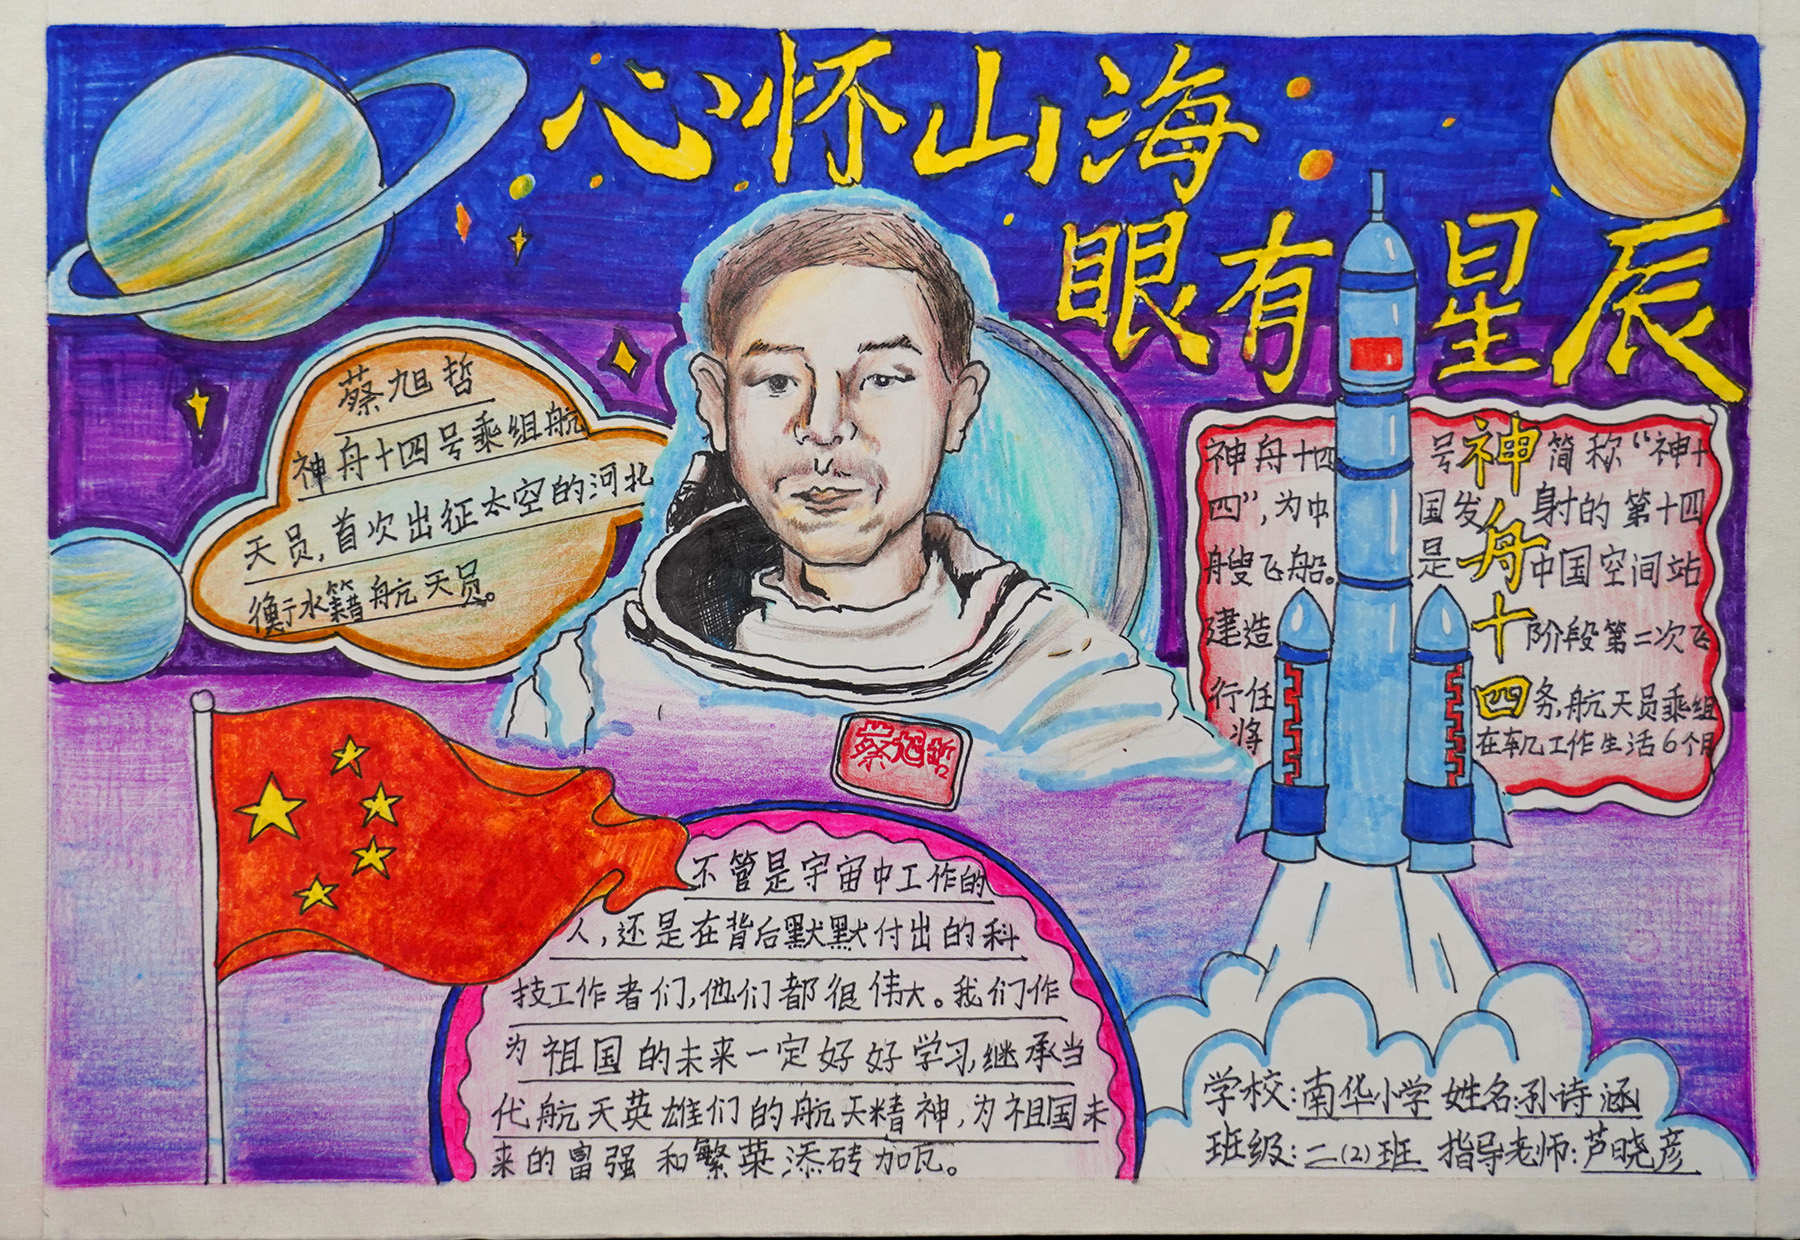 心怀山海
眼有星辰
蔡旭哲
神舟十四号乘组航
天员,首次出征太空的河北
衡水籍航天员。
神舟十四号简称“神十
四”,为中国发射的第十四
艘飞船。是中国空间站
建造阶段第二次飞
行任务,航天员乘组
将在轨工作生活6个月
神舟十四
蔡旭哲
不管是宇宙中工作的
人,还是在背后默默付出的科
技工作者们,他们都很伟大。我们作
为祖国的未来一定好好学习,继承当
代航天英雄们的航天精神,为祖国未
来的富强和繁荣添砖加瓦。
学校:南华小学 姓名:孙诗涵
班级:二(2)班 指导老师:芦晓彦